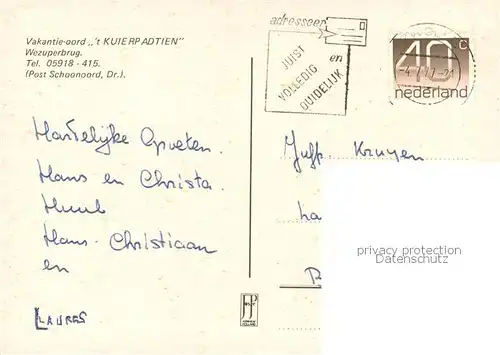 Vakantie-oord „'t KUIERPADTIEN"
Wezuperbrug.
Tel. 05918 - 415.
(Post Schoonoord, Dr.).
adresseer
JUIST
VOLLEDIG
en
DUIDELIJK
40 c
nederland
Hartelijke Groeten.
Hans en Christa.
Huub
Hans-Christiaan
en
LAURES
Juffr. Kruyen
La
privacy protection
DasAntikeck.com